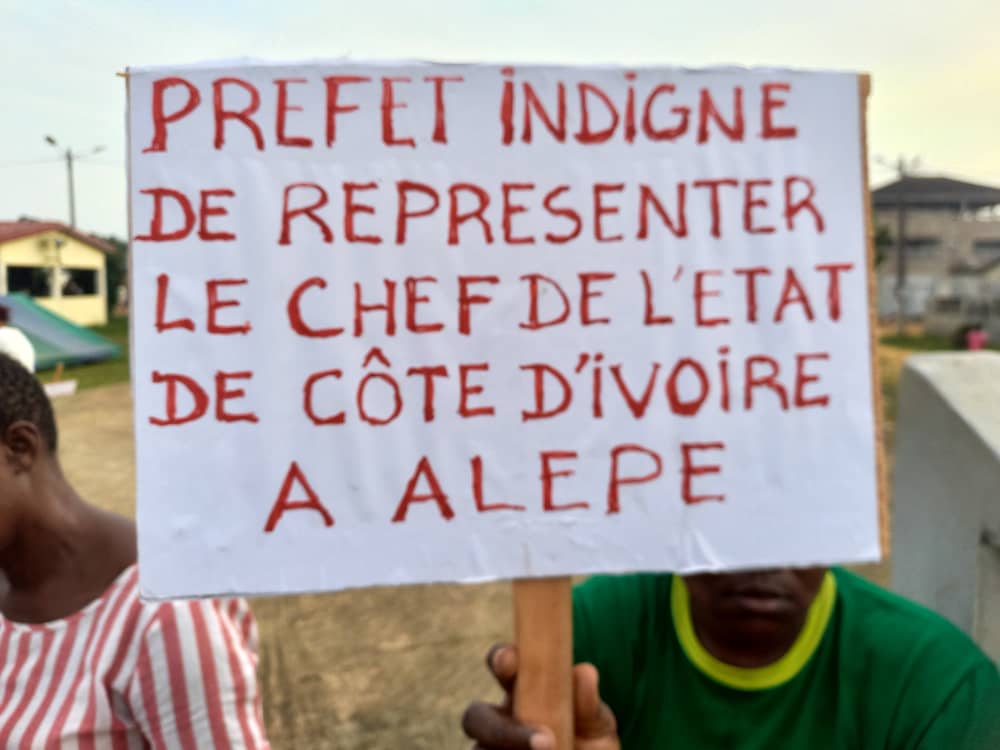 PREFET INDIGNE
DE REPRESENTER
LE CHEF DE L'ETAT
DE CÔTE D'IVOIRE
A ALEPE